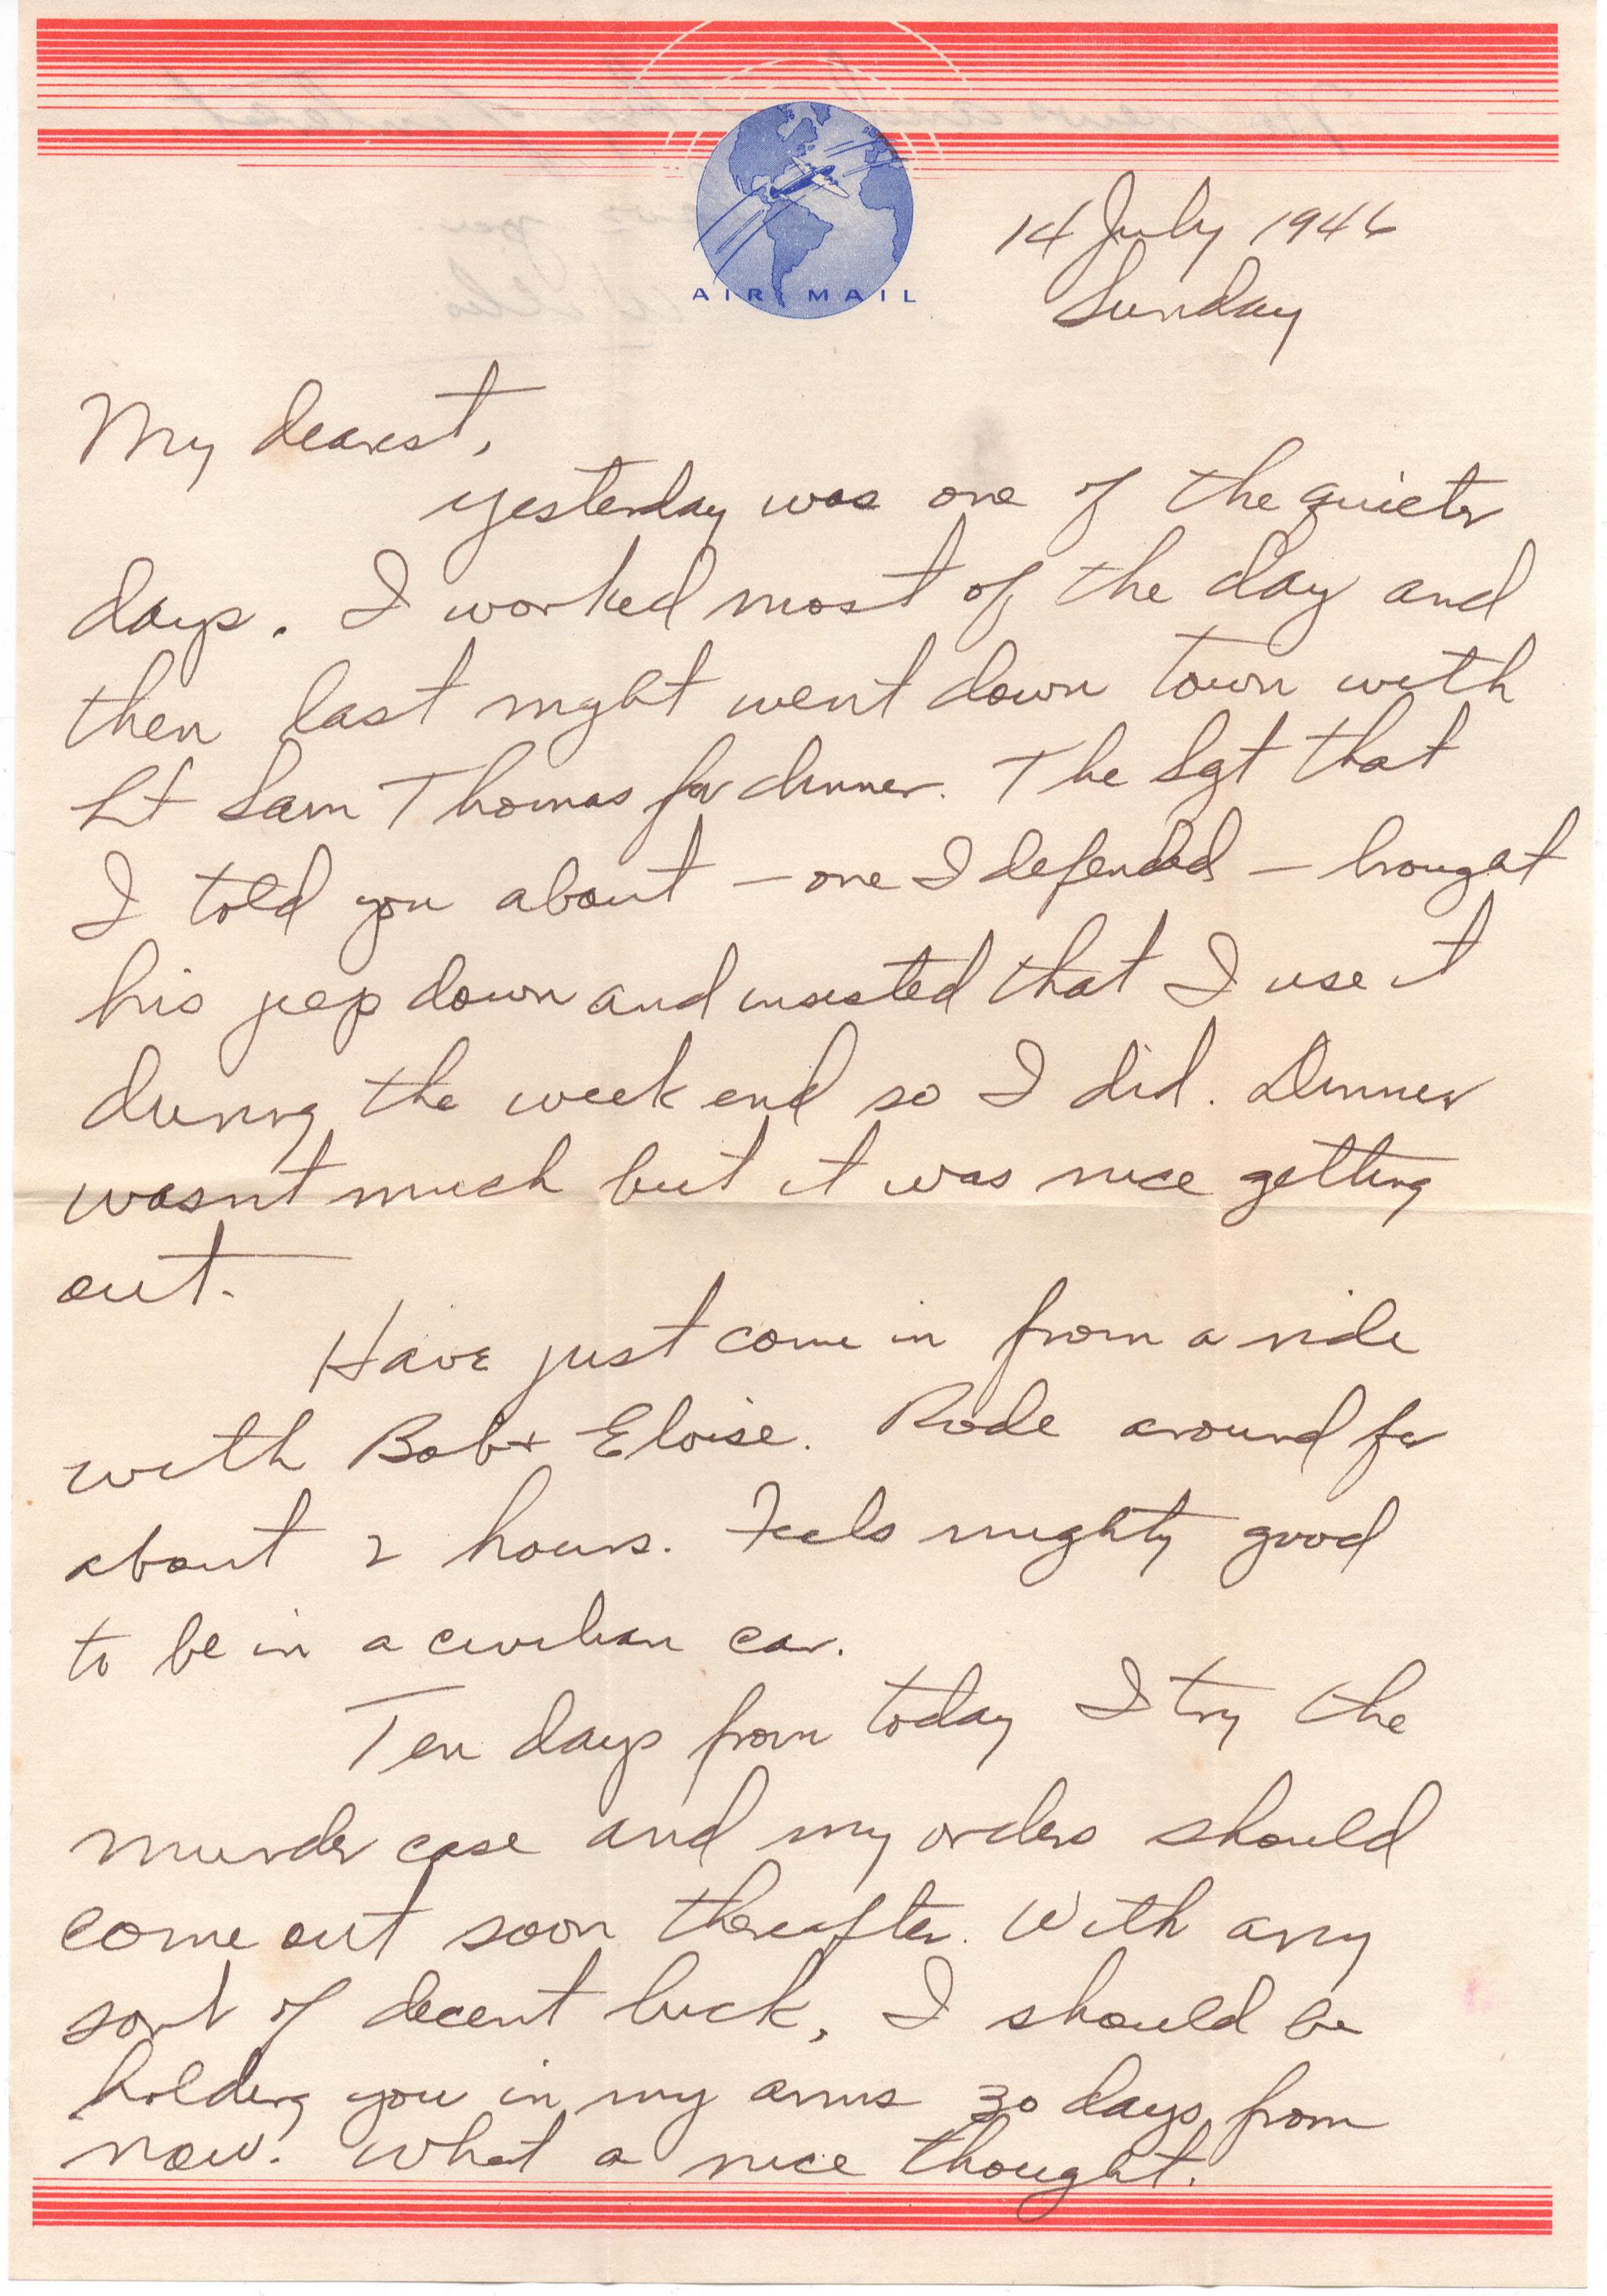 AIR MAIL
14 July 1946
Sunday
My dearest,
yesterday was one of the quieter
days. I worked most of the day and
then last night went down town with
Lt Sam Thomas for dinner. The Sgt that
I told you about – one I defended – brought
his jeep down and insisted that I use it
during the week end so I did. Dinner
wasnt much but it was nice getting
out.
Have just come in from a ride
with Bob + Eloise. Rode around for
about 2 hours. Feels mighty good
to be in a civilian car.
Ten days from today I try the
murder case and my orders should
come out soon thereafter. With any
sort of decent luck, I should be
holding you in my arms 30 days from
now. What a nice thought.